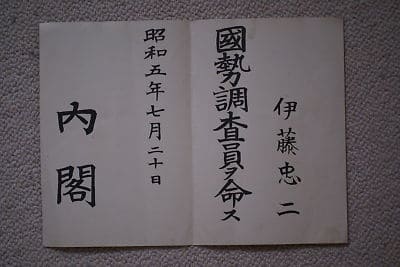 伊藤忠二
國勢調査員ヲ命ス
昭和五年七月二十日
内閣